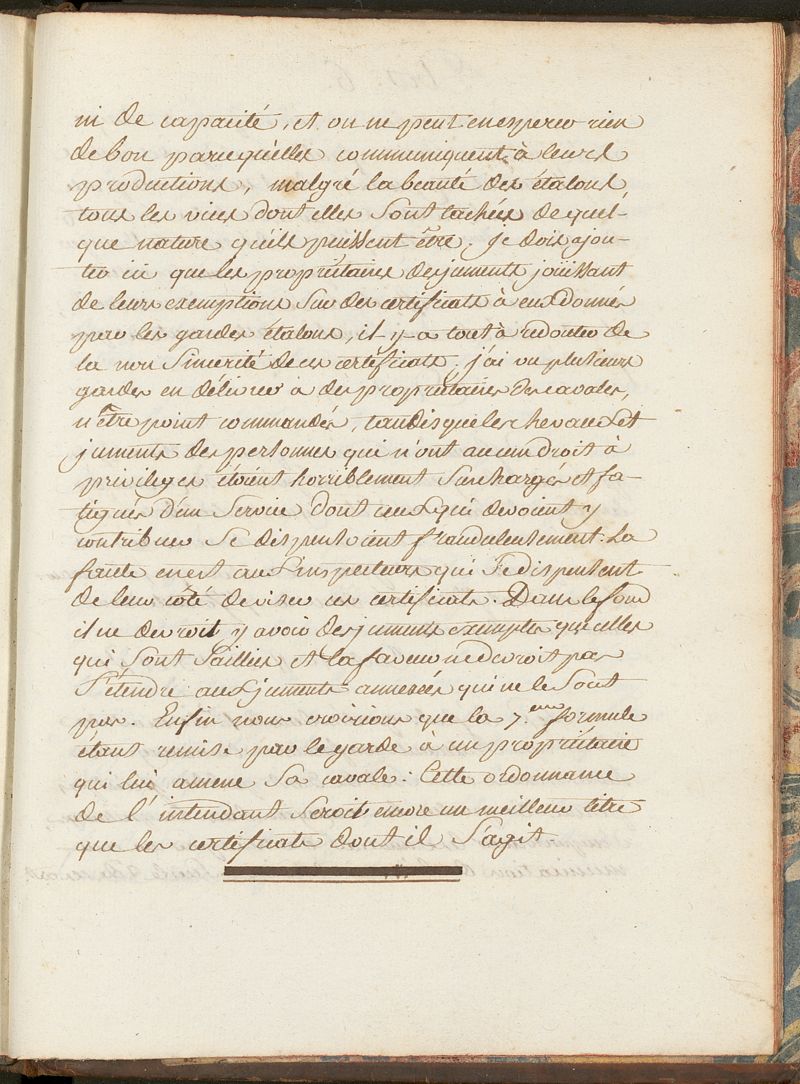 ni de capacité, et on ne peut en esperer rien
de bon parcequ'elles communiquent à leurs
productions, malgré la beauté des étalons,
tous les vices dont elles sont tachées de quel-
que nature qu'ils puissent être. Je dois ajou-
ter ici que les propriétaires des juments joüissant
de leurs exemptions sur des certificats à eux donnés
par les gardes étalons, il y a tout à redouter de
la non sincerité de ces certificats, j'ai vu plusieurs
gardes en délivrer à des propriétaires de cavales,
n'être point commandés, tandis que les chevaux et
juments des personnes qui n'ont aucun droit à
privileges étoient horriblement surchargés et fa-
tigués d'un service dont ceux qui devoient y
contribuer se dispensoient frauduleusement. La
faute en est aux inspecteurs qui se dispensent
de leur côté de viser ces certificats. Dans le fond
il ne devroit y avoir des juments exemptes que celles
qui sont saillies et la faveur ne devroit pas
s'étendre aux juments annexées qui ne le sont
pas. Enfin nous croirions que la 7.eme formule
étant remise par le garde à un propriétaire
qui lui amene sa cavale: Cette ordonnance
de l'intendant seroit encore un meilleur titre
que les certificats dont il s'agit